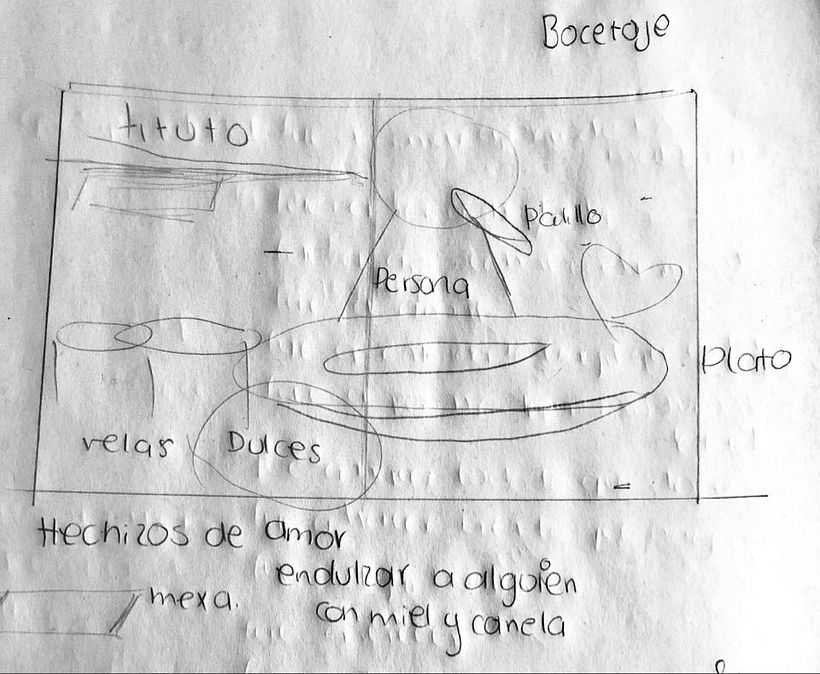 Bocetaje
tituto
Palillo
Persona
Plato
velas
Dulces
Hechizos de amor
endulzar a alguien
con miel y canela
mexa.